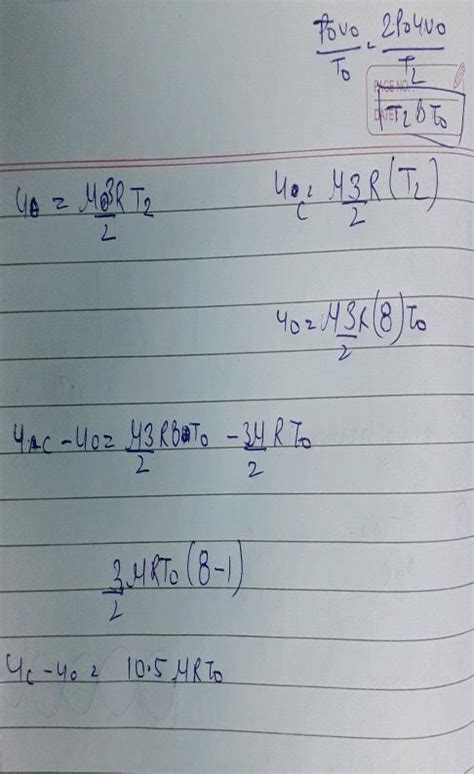 P₀V₀/T₀ = 2P₀4V₀/T₂
PAGE NO.:
DATE:
T₂ 8 T₀
U = μ3RT₂/2
U_C = μ3R(T₂)/2
U₀ = μ3R(8)T₀/2
U_C - U₀ = μ3R8T₀/2 - 3μRT₀/2
3/2 μRT₀(8-1)
U_C - U₀ = 10.5 μRT₀